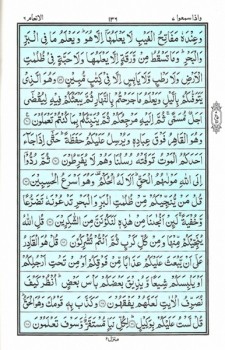 واذا سمعوا ٧ ١٣٩ الانعام ٦
وَعِنْدَهٗ مَفَاتِحُ الْغَيْبِ لَا يَعْلَمُهَاۤ اِلَّا هُوَ ؕ وَيَعْلَمُ مَا فِى الْبَرِّ
وَالْبَحْرِ ؕ وَمَا تَسْقُطُ مِنْ وَّرَقَةٍ اِلَّا يَعْلَمُهَا وَلَا حَبَّةٍ فِىْ ظُلُمٰتِ
الْاَرْضِ وَلَا رَطْبٍ وَّلَا يَابِسٍ اِلَّا فِىْ كِتٰبٍ مُّبِيْنٍ وَهُوَ الَّذِىْ
يَتَوَفّٰىكُمْ بِالَّيْلِ وَيَعْلَمُ مَا جَرَحْتُمْ بِالنَّهَارِ ثُمَّ يَبْعَثُكُمْ فِيْهِ لِيُقْضٰۤى
اَجَلٌ مُّسَمًّى ۚ ثُمَّ اِلَيْهِ مَرْجِعُكُمْ ثُمَّ يُنَبِّئُكُمْ بِمَا كُنْتُمْ تَعْمَلُوْنَ
وَهُوَ الْقَاهِرُ فَوْقَ عِبَادِهٖ وَيُرْسِلُ عَلَيْكُمْ حَفَظَةً ؕ حَتّٰۤى اِذَا جَآءَ
اَحَدَكُمُ الْمَوْتُ تَوَفَّتْهُ رُسُلُنَا وَهُمْ لَا يُفَرِّطُوْنَ ثُمَّ رُدُّوْۤا
اِلَى اللّٰهِ مَوْلٰىهُمُ الْحَقِّ ؕ اَلَا لَهُ الْحُكْمُ وَهُوَ اَسْرَعُ الْحٰسِبِيْنَ قُلْ مَنْ
يُّنَجِّيْكُمْ مِّنْ ظُلُمٰتِ الْبَرِّ وَالْبَحْرِ تَدْعُوْنَهٗ تَضَرُّعًا
وَّخُفْيَةً ۚ لَئِنْ اَنْجٰىنَا مِنْ هٰذِهٖ لَنَكُوْنَنَّ مِنَ الشّٰكِرِيْنَ قُلِ اللّٰهُ
يُنَجِّيْكُمْ مِّنْهَا وَمِنْ كُلِّ كَرْبٍ ثُمَّ اَنْتُمْ تُشْرِكُوْنَ قُلْ هُوَ الْقَادِرُ
عَلٰۤى اَنْ يَّبْعَثَ عَلَيْكُمْ عَذَابًا مِّنْ فَوْقِكُمْ اَوْ مِنْ تَحْتِ اَرْجُلِكُمْ
اَوْ يَلْبِسَكُمْ شِيَعًا وَّيُذِيْقَ بَعْضَكُمْ بَاْسَ بَعْضٍ ؕ اُنْظُرْ كَيْفَ
نُصَرِّفُ الْاٰيٰتِ لَعَلَّهُمْ يَفْقَهُوْنَ وَكَذَّبَ بِهٖ قَوْمُكَ وَهُوَ الْحَقُّ ؕ
قُلْ لَّسْتُ عَلَيْكُمْ بِوَكِيْلٍ لِكُلِّ نَبَاٍ مُّسْتَقَرٌّ وَّسَوْفَ تَعْلَمُوْنَ
منزل٢